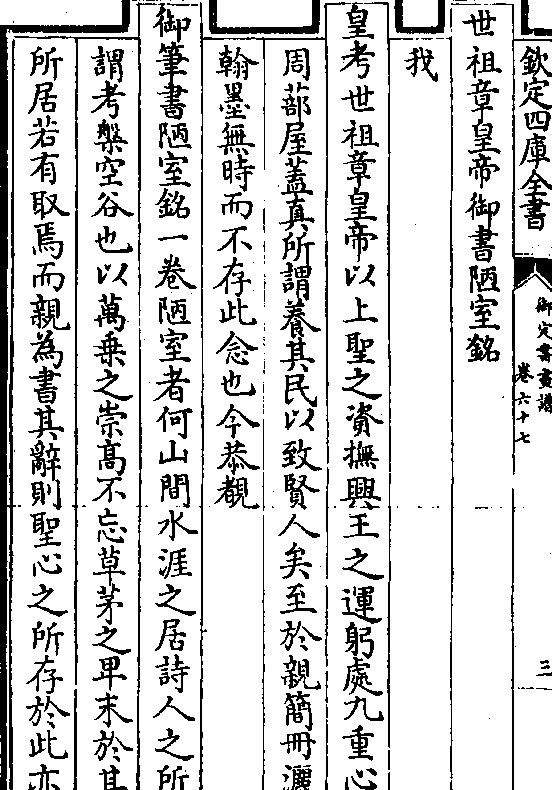 欽定四庫全書
御定書畫譜
卷六十七
三
世祖章皇帝御書陋室銘
我
皇考世祖章皇帝以上聖之資撫興王之運躬處九重心
周蔀屋蓋真所謂養其民以致賢人矣至於親簡冊灑
翰墨無時而不存此念也今恭覩
御筆書陋室銘一卷陋室者何山間水涯之居詩人之所
謂考槃空谷也以萬乗之崇髙不忘草茅之卑末於其
所居若有取焉而親為書其辭則聖心之所存於此亦